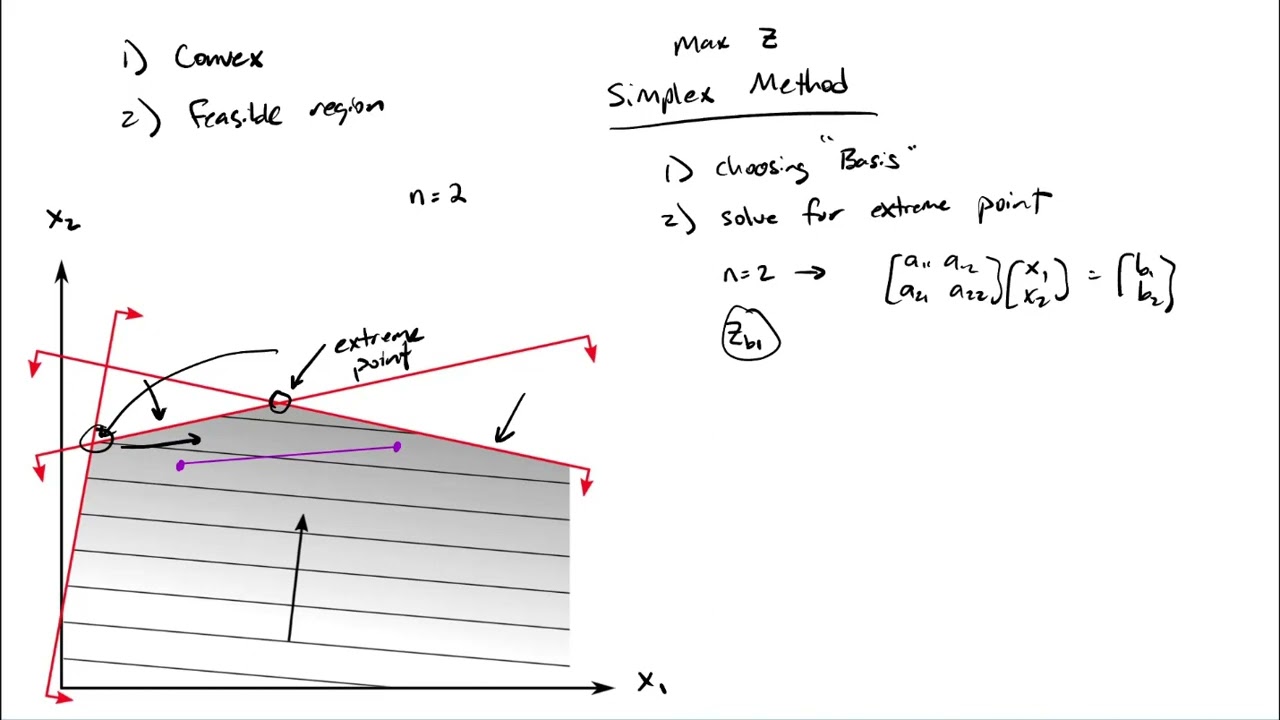 1) Convex
2) Feasible region
n = 2
Max Z
Simplex Method
1) choosing "Basis"
2) solve for extreme point
n = 2 → [a11 a12 a21 a22] [x1 x2] = [b1 b2]
Zb1
x2
extreme
point
x1